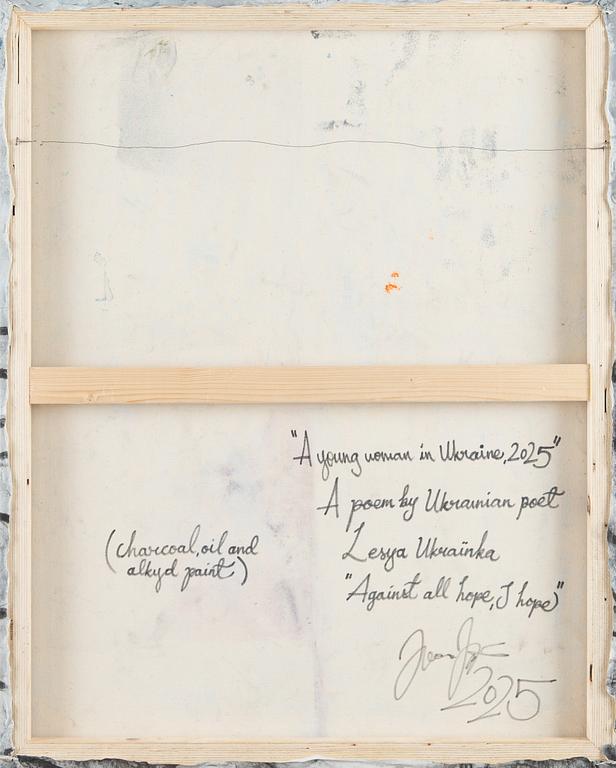 "A young woman in Ukraine, 2025"
A poem by Ukrainian poet
Lesya Ukraïnka
"Against all hope, I hope)"
(charcoal, oil and
alkyd paint)
2025